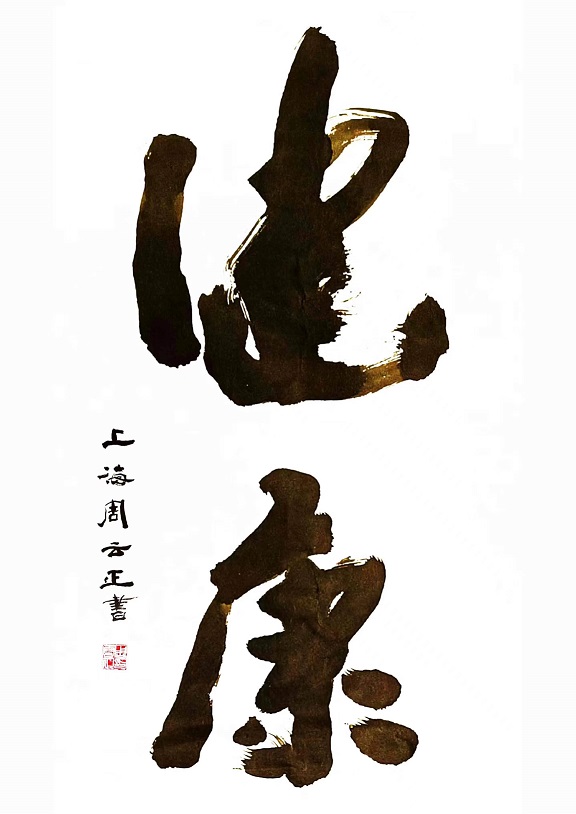 健康
上海周云正書